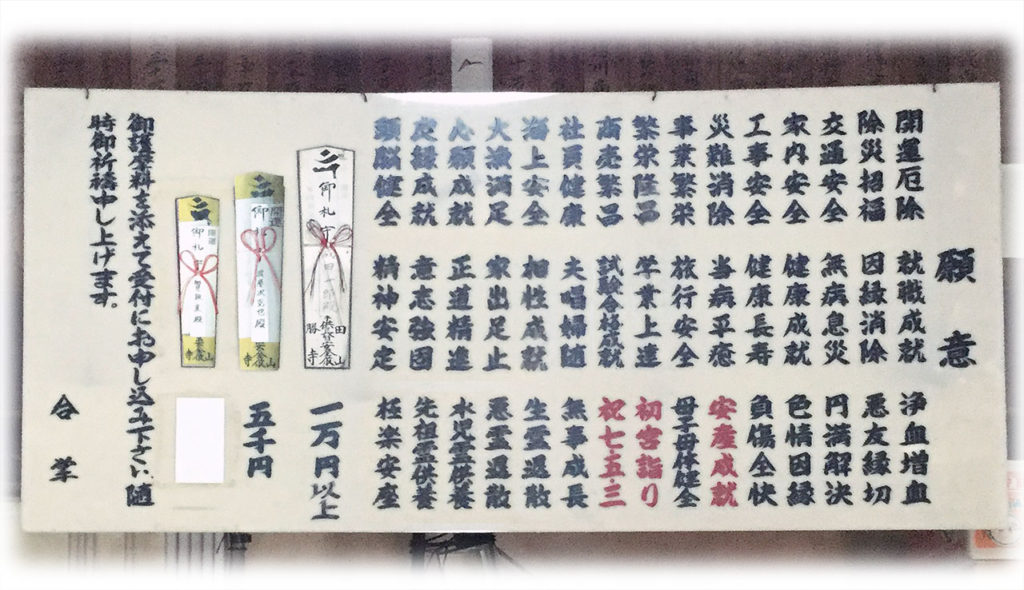 願意
開運厄除 就職成就 浄血増血
除災招福 因縁消除 悪友縁切
交通安全 無病息災 円満解決
家内安全 健康成就 色情因縁
工事安全 健康長寿 負傷全快
災難消除 当病平癒 安産成就
事業繁栄 旅行安全 母子母体健全
繁栄隆昌 学業上達 初宮詣り
商売繁昌 試験合格成就 祝七・五・三
社員健康 夫唱婦随 無事成長
海上安全 相性成就 生霊退散
大漁満足 家出足止 悪霊退散
心願成就 正道精進 水児霊供養
良縁成就 意志強固 先祖霊供養
頭脳健全 精神安定 極楽安座
御札
一万円以上
御札
五千円
御札
御護摩料を添えて受付にお申し込み下さい。随
時御祈禱申し上げます。
合掌